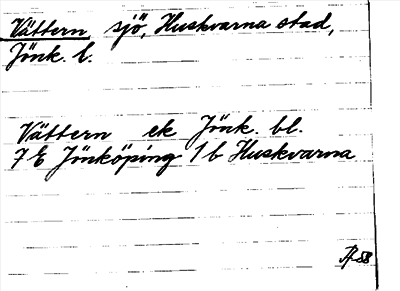 Vättern sjö, Huskvarna stad,
Jönk. l.
Vättern ek Jönk. bl.
7 E Jönköping 1 b Huskvarna